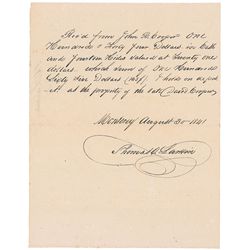 Recd from John B. Cooper One
Hundred & Forty Four Dollars in Cash
and Fourteen Hides valued at Twenty one
dollars. which sums of One Hundred
Sixty five Dollars (165$). I hold on depos
it as the property of the late David
Monterey August 30 1841
Thomas O. Larkin